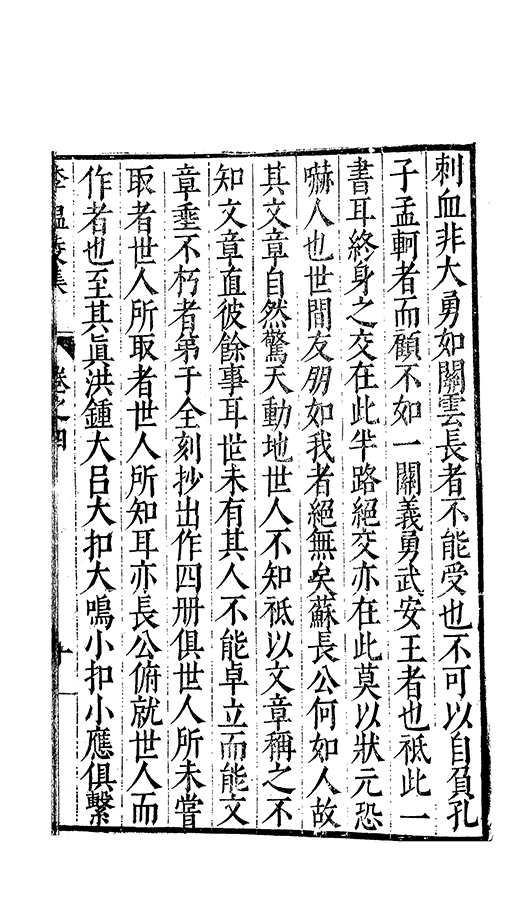 刺血非大勇如關雲長者不能受也不可以自負孔
子孟軻者而顧不如一關義勇武安王者也祗此一
書耳終身之交在此半路絕交亦在此莫以狀元恐
嚇人也世間友朋如我者絕無矣蘇長公何如人故
其文章自然驚天動地世人不知祗以文章稱之不
知文章直彼餘事耳世未有其人不能卓立而能文
章垂不朽者弟于全刻抄出作四册俱世人所未嘗
取者世人所取者世人所知耳亦長公俯就世人而
作者也至其眞洪鍾大呂大扣大鳴小扣小應俱繫
李溫陵集 卷之四 十